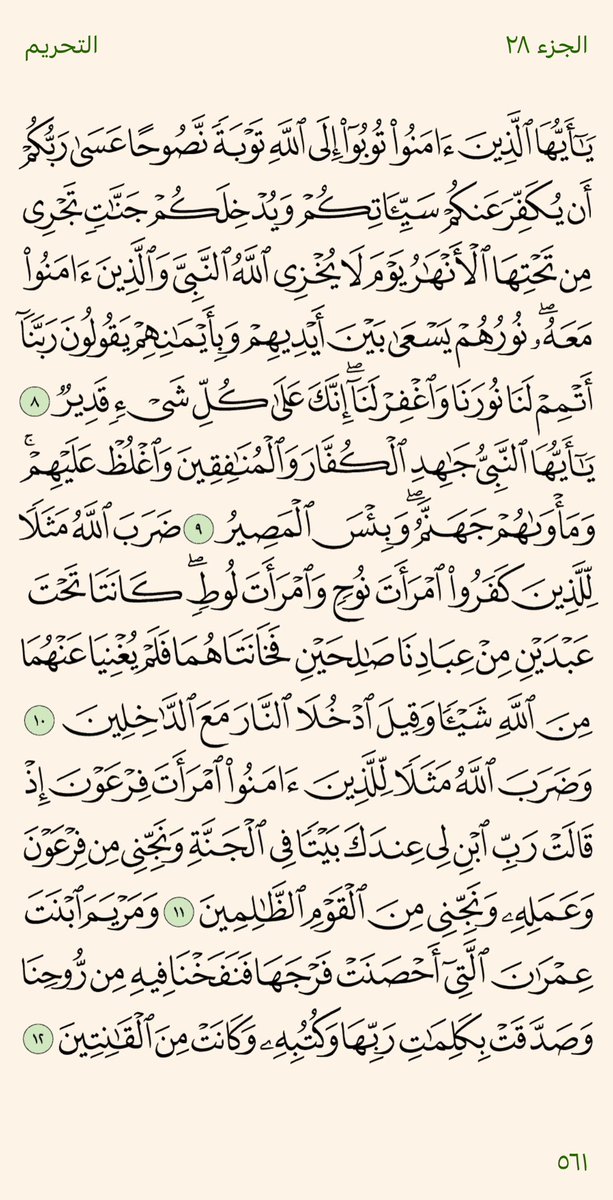 الجزء ٢٨
التحريم
يَـٰٓأَيُّهَا ٱلَّذِينَ ءَامَنُوا۟ تُوبُوٓا۟ إِلَى ٱللَّهِ تَوْبَةً نَّصُوحًا عَسَىٰ رَبُّكُمْ
أَن يُكَفِّرَ عَنكُمْ سَيِّـَٔاتِكُمْ وَيُدْخِلَكُمْ جَنَّـٰتٍ تَجْرِى
مِن تَحْتِهَا ٱلْأَنْهَـٰرُ يَوْمَ لَا يُخْزِى ٱللَّهُ ٱلنَّبِىَّ وَٱلَّذِينَ ءَامَنُوا۟
مَعَهُۥ ۖ نُورُهُمْ يَسْعَىٰ بَيْنَ أَيْدِيهِمْ وَبِأَيْمَـٰنِهِمْ يَقُولُونَ رَبَّنَآ
أَتْمِمْ لَنَا نُورَنَا وَٱغْفِرْ لَنَآ ۖ إِنَّكَ عَلَىٰ كُلِّ شَىْءٍ قَدِيرٌ ٨
يَـٰٓأَيُّهَا ٱلنَّبِىُّ جَـٰهِدِ ٱلْكُفَّارَ وَٱلْمُنَـٰفِقِينَ وَٱغْلُظْ عَلَيْهِمْ ۚ
وَمَأْوَىٰهُمْ جَهَنَّمُ ۖ وَبِئْسَ ٱلْمَصِيرُ ٩ ضَرَبَ ٱللَّهُ مَثَلًا
لِّلَّذِينَ كَفَرُوا۟ ٱمْرَأَتَ نُوحٍ وَٱمْرَأَتَ لُوطٍ ۖ كَانَتَا تَحْتَ
عَبْدَيْنِ مِنْ عِبَادِنَا صَـٰلِحَيْنِ فَخَانَتَاهُمَا فَلَمْ يُغْنِيَا عَنْهُمَا
مِنَ ٱللَّهِ شَيْـًٔا وَقِيلَ ٱدْخُلَا ٱلنَّارَ مَعَ ٱلدَّٰخِلِينَ ١٠
وَضَرَبَ ٱللَّهُ مَثَلًا لِّلَّذِينَ ءَامَنُوا۟ ٱمْرَأَتَ فِرْعَوْنَ إِذْ
قَالَتْ رَبِّ ٱبْنِ لِى عِندَكَ بَيْتًا فِى ٱلْجَنَّةِ وَنَجِّنِى مِن فِرْعَوْنَ
وَعَمَلِهِۦ وَنَجِّنِى مِنَ ٱلْقَوْمِ ٱلظَّـٰلِمِينَ ١١ وَمَرْيَمَ ٱبْنَتَ
عِمْرَٰنَ ٱلَّتِىٓ أَحْصَنَتْ فَرْجَهَا فَنَفَخْنَا فِيهِ مِن رُّوحِنَا
وَصَدَّقَتْ بِكَلِمَـٰتِ رَبِّهَا وَكُتُبِهِۦ وَكَانَتْ مِنَ ٱلْقَـٰنِتِينَ ١٢
٥٦١